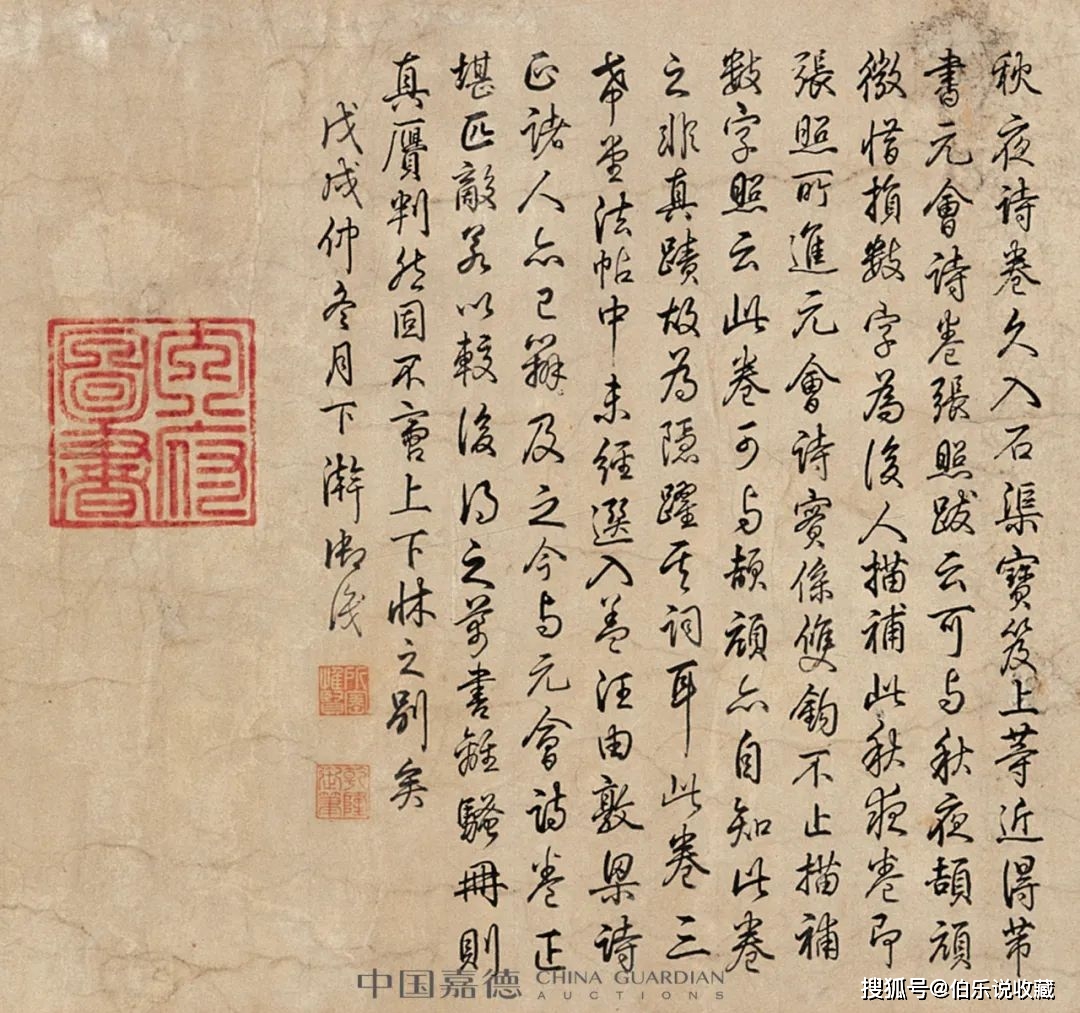 秋夜诗卷久入石渠寶笈上等近得帶
書元會诗卷張照跋云可与秋夜頡頏
微惜損數字為後人描補此秋夜卷即
張照所進元會诗實係雙鈎不止描補
數字照云此卷可与頡頏亦自知此卷
之非真蹟故為隱躍其詞耳此卷三
希堂法帖中未經選入蓋汪由敦梁詩
正諸人亦已辨及之今与元會诗卷正
堪匹敵若以較後得之草書離騷冊則
真贋判然固不啻上下牀之别矣
戊戌仲冬月下澣御識
所寶惟賢
乾隆御筆
天府圖書
中国嘉德 CHINA GUARDIAN
AUCTIONS
搜狐号@伯乐说收藏